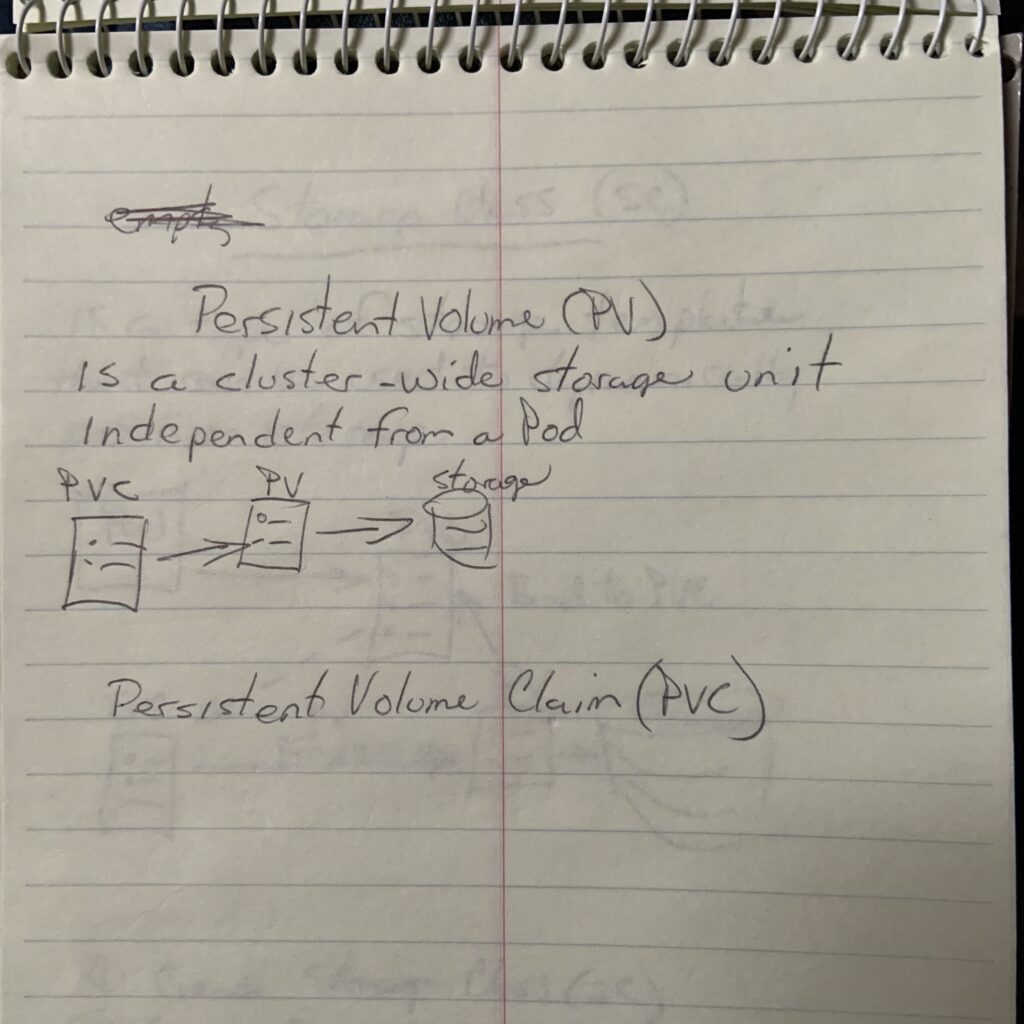 Persistent Volume (PV)
Is a cluster-wide storage unit
Independent from a Pod
PVC PV storage
Persistent Volume Claim (PVC)